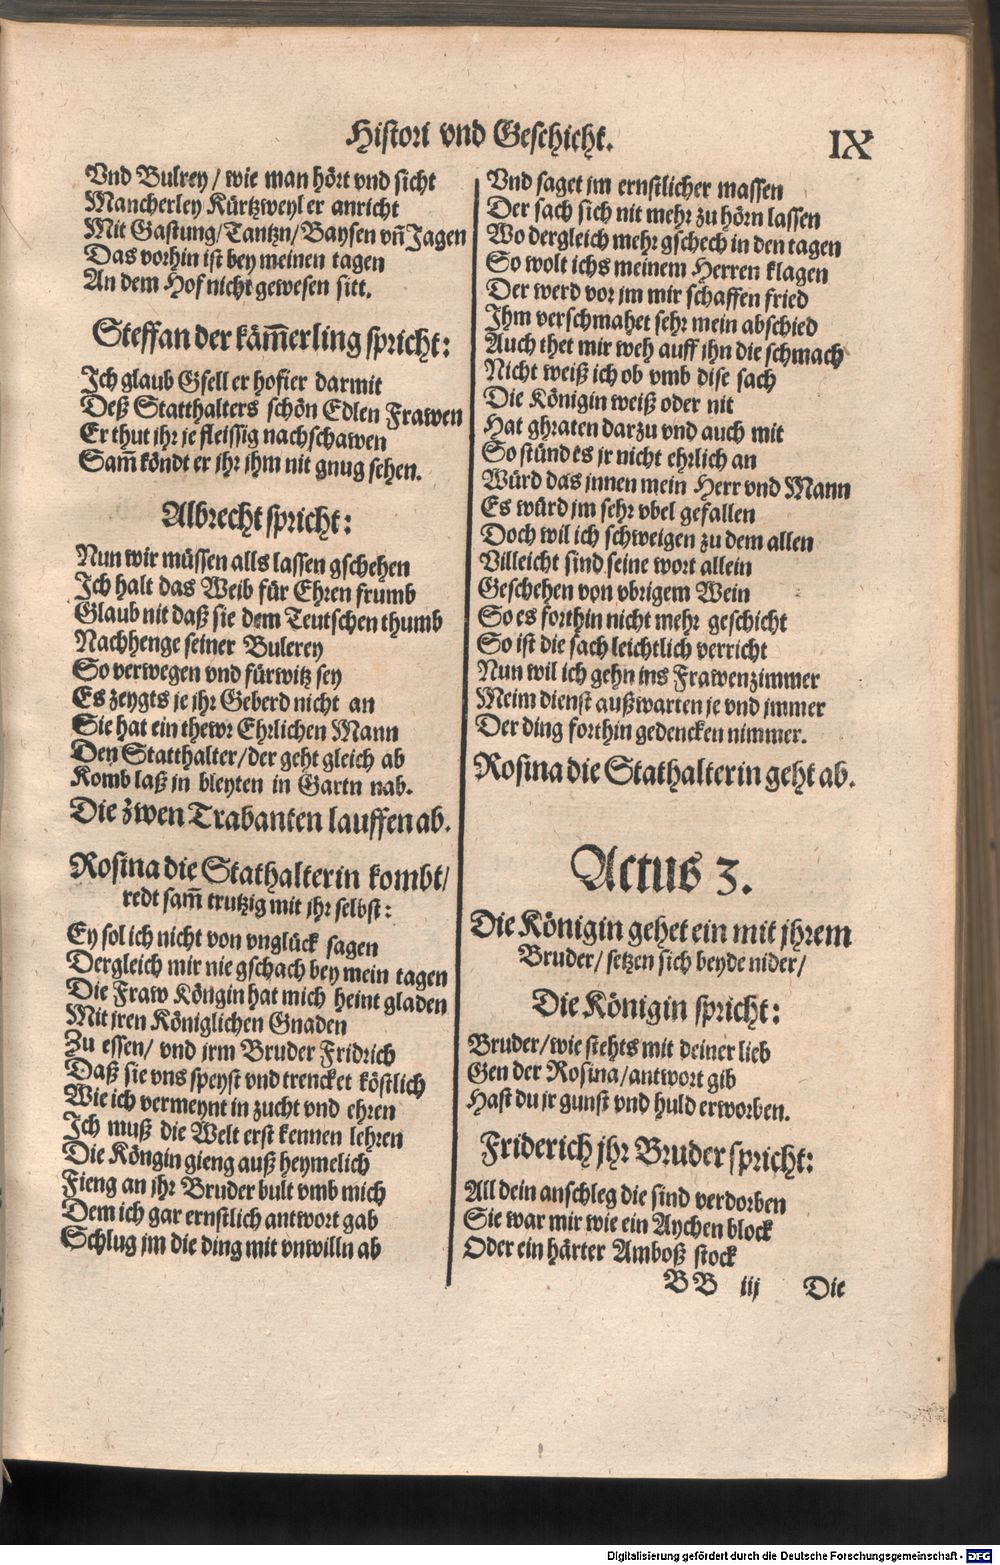 Histori vnd Geschicht.
IX
Vnd Bulrey / wie man hört vnd sicht
Mancherley Kürtzweyl er anricht
Mit Gastung/Tantzn/Baysen vn̄ Jagen
Das vorhin ist bey meinen tagen
An dem Hof nicht gewesen sitt.
Steffan der käm̄erling spricht:
Ich glaub Gsell er hofier darmit
Deß Statthalters schön Edlen Frawen
Er thut jhr je fleissig nachschawen
Sam̄ köndt er jhr jhm nit gnug sehen.
Albrecht spricht:
Nun wir müssen alls lassen gschehen
Ich halt das Weib für Ehren frumb
Glaub nit daß sie dem Teutschen thumb
Nachhenge seiner Bulerey
So verwegen vnd fürwitz sey
Es zeygts je jhr Geberd nicht an
Sie hat ein thewr Ehrlichen Mann
Den Statthalter/der geht gleich ab
Komb laß jn bleyten in Gartn nab.
Die zwen Trabanten lauffen ab.
Rosina die Stathalterin kombt/
redt sam̄ trutzig mit jhr selbst:
Ey sol ich nicht von vnglück sagen
Dergleich mir nie gschach bey mein tagen
Die Fraw Köngin hat mich heint gladen
Mit jren Königlichen Gnaden
Zu essen/ vnd jrm Bruder Fridrich
Daß sie vns speyst vnd trencket köstlich
Wie ich vermeynt in zucht vnd ehren
Ich muß die Welt erst kennen lehren
Die Köngin gieng auß heymelich
Fieng an jhr Bruder bult vmb mich
Dem ich gar ernstlich antwort gab
Schlug jm die ding mit vnwilln ab
Vnd saget jm ernstlicher massen
Der sach sich nit mehr zu hörn lassen
Wo dergleich mehr gschech in den tagen
So wolt ichs meinem Herren klagen
Der werd vor jm mir schaffen fried
Ihm verschmahet sehr mein abschied
Auch thet mir weh auff ihn die schmach
Nicht weiß ich ob vmb dise sach
Die Königin weiß oder nit
Hat ghraten darzu vnd auch mit
So stünd es jr nicht ehrlich an
Würd das jnnen mein Herr vnd Mann
Es würd jm sehr vbel gefallen
Doch wil ich schweigen zu dem allen
Villeicht sind seine wort allein
Geschehen von vbrigem Wein
So es forthin nicht mehr geschicht
So ist die sach leichtlich verricht
Nun wil ich gehn ins Frawenzimmer
Meim dienst außwarten je vnd jmmer
Der ding forthin gedencken nimmer.
Rosina die Stathalterin geht ab.
Actus 3.
Die Königin gehet ein mit jhrem
Bruder/ setzen sich beyde nider/
Die Königin spricht:
Bruder/wie stehts mit deiner lieb
Gen der Rosina/antwort gib
Hast du jr gunst vnd huld erworben.
Friderich jhr Bruder spricht:
All dein anschleg die sind verdorben
Sie war mir wie ein Aychen block
Oder ein härter Amboß stock
BB iij Die
Digitalisierung gefördert durch die Deutsche Forschungsgemeinschaft - DFG